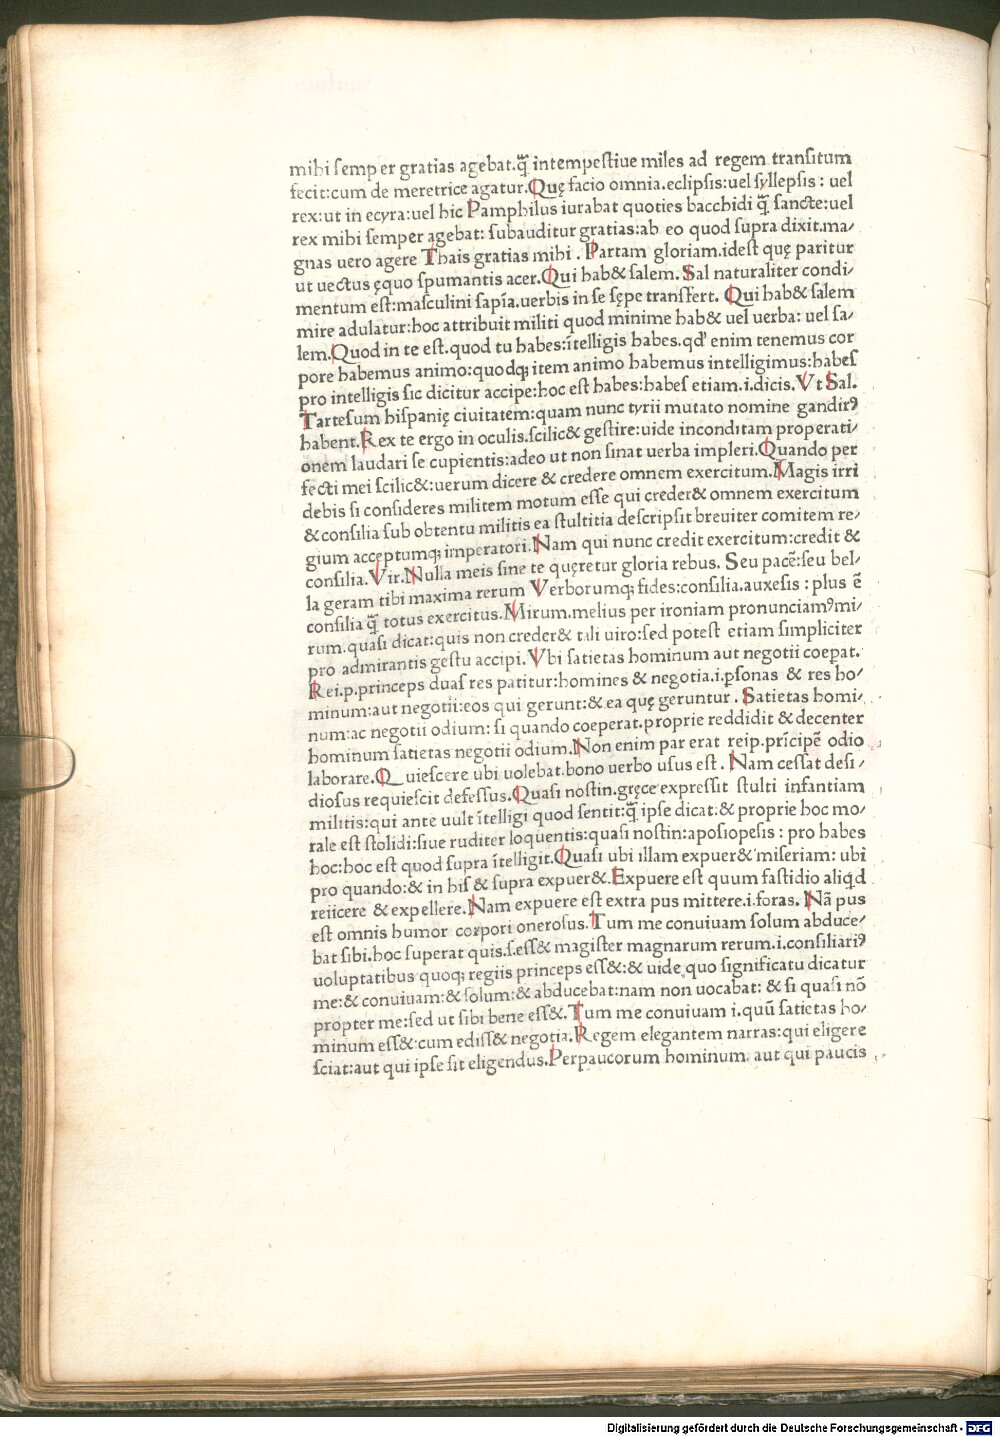 mihi semp er gratias agebat.q̃ intempestiue miles ad regem transitum
fecit:cum de meretrice agatur.Quę facio omnia.eclipsis:uel syllepsis : uel
rex:ut in ecyra:uel hic Pamphilus iurabat quoties bacchidi q̃ sancte:uel
rex mihi semper agebat: subauditur gratias:ab eo quod supra dixit.ma/
gnas uero agere Thais gratias mihi . Partam gloriam.idest quę paritur
ut uectus ęquo spumantis acer.Qui hab& salem. Sal naturaliter condi/
mentum est:masculini sapīa.uerbis in se sępe transfert. Qui hab& salem
mire adulatur:hoc attribuit militi quod minime hab& uel uerba: uel sa/
lem.Quod in te est.quod tu habes:ītelligis habes.qd' enim tenemus cor
pore habemus animo:quodq; item animo habemus intelligimus:habes
pro intelligis sic dicitur accipe:hoc est habes:habes etiam.i.dicis.Vt Sal.
Tartesum hispanię ciuitatem:quam nunc tyrii mutato nomine gandirꝰ
habent.Rex te ergo in oculis.scilic& gestire:uide inconditam properati/
onem laudari se cupientis:adeo ut non sinat uerba impleri.Quando per
fecti mei scilic&:uerum dicere & credere omnem exercitum.Magis irri
debis si consideres militem motum esse qui creder& omnem exercitum
& consilia sub obtentu militis ea stultitia descripsit breuiter comitem re/
gium acceptumq; imperatori.Nam qui nunc credit exercitum:credit &
consilia.Vir.Nulla meis sine te quęretur gloria rebus. Seu pacē:seu bel/
la geram tibi maxima rerum Verborumq; fides:consilia.auxesis : plus ē
consilia q̃ totus exercitus.Mirum.melius per ironiam pronunciamꝰmi/
rum.quasi dicat:quis non creder& tali uiro:sed potest etiam simpliciter
pro admirantis gestu accipi.Vbi satietas hominum aut negotii coepat.
Rei.p.princeps duas res patitur:homines & negotia.i.psonas & res ho/
minum:aut negotii:eos qui gerunt:& ea quę geruntur . Satietas homi/
num:ac negotii odium: si quando coeperat.proprie reddidit & decenter
hominum satietas negotii odium.Non enim par erat reip.prīcipē odio
laborare.Quiescere ubi uolebat.bono uerbo usus est . Nam cessat desi/
diosus requiescit defessus.Quasi nostin.gręce expressit stulti infantiam
militis:qui ante uult ītelligi quod sentit:q̃ ipse dicat:& proprie hoc mo/
rale est stolidi:siue ruditer loquentis:quasi nostin:aposiopesis : pro habes
hoc:hoc est quod supra ītelligit.Quasi ubi illam expuer& miseriam: ubi
pro quando:& in his & supra expuer&.Expuere est quum fastidio aliqd
reiicere & expellere.Nam expuere est extra pus mittere.i.foras. Nā pus
est omnis humor corpori onerosus.Tum me conuiuam solum abduce/
bat sibi.hoc superat quis.s.ess& magister magnarum rerum.i.consiliariꝰ
uoluptatibus quoq; regiis princeps ess&:& uide quo significatu dicatur
me:& conuiuam:& solum:& abducebat:nam non uocabat: & si quasi nō
propter me:sed ut sibi bene ess&.Tum me conuiuam i.quū satietas ho/
minum ess&:cum ediss& negotia.Regem elegantem narras:qui eligere
sciat:aut qui ipse sit eligendus.Perpaucorum hominum. aut qui paucis
Digitalisierung gefördert durch die Deutsche Forschungsgemeinschaft - DFG